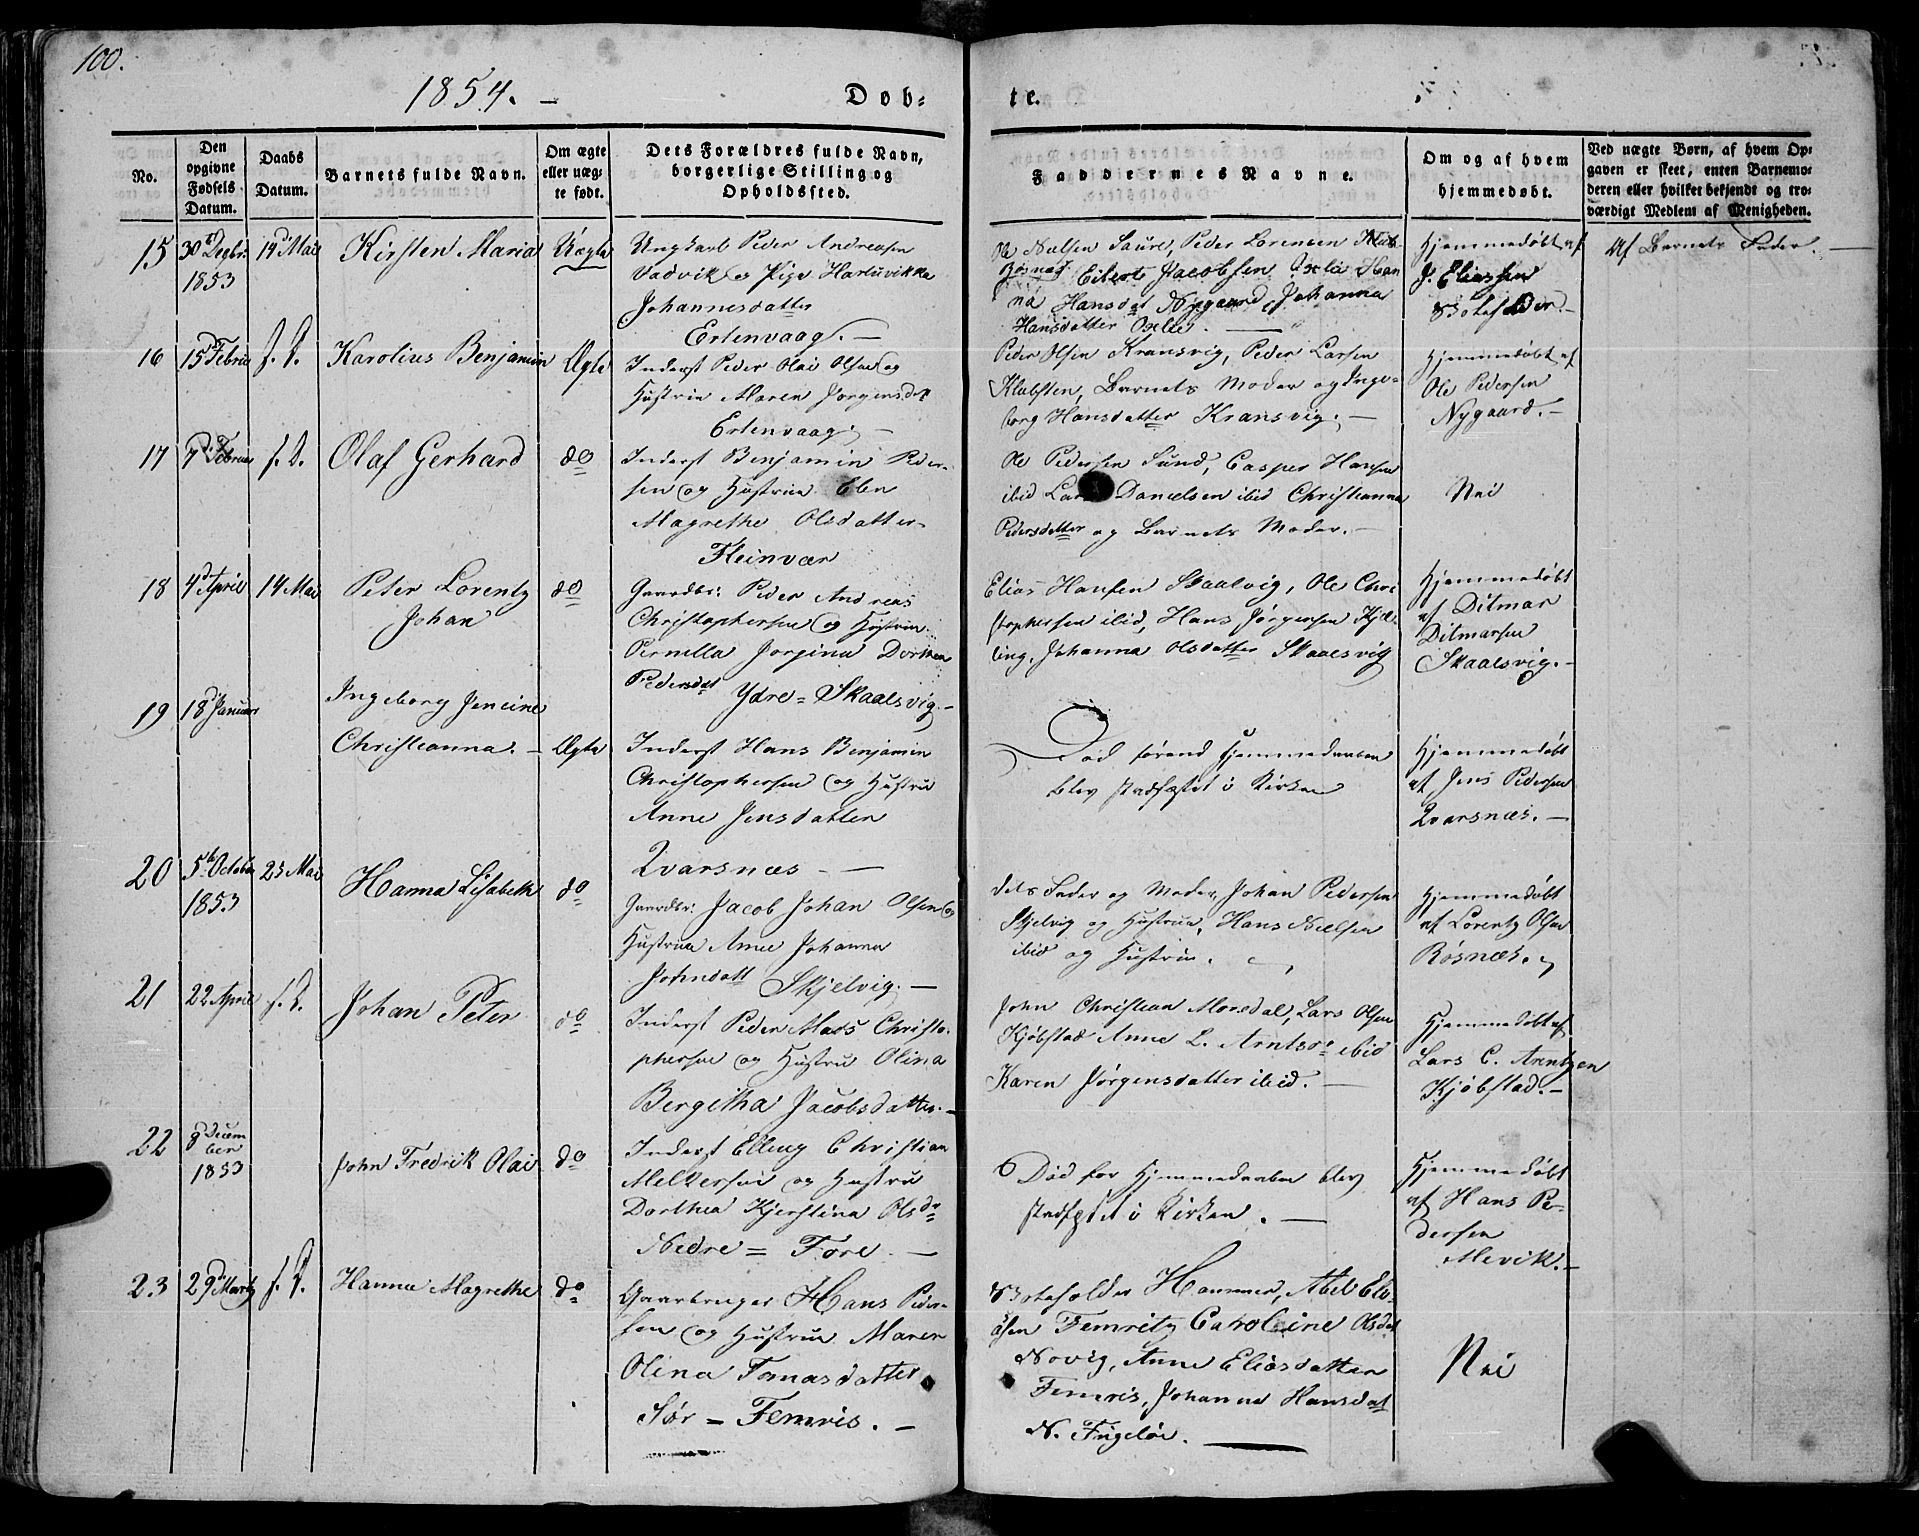 100.
1854. –
Døb-
te.
No.
Den opgivne Fødsels Datum.
Daabs Datum.
Barnets fulde Navn.
Om ægte eller uægte født.
Dets Forældres fulde Navn, borgerlige Stilling og Opholdssted.
Faddernes Navne.
Om og af hvem hjemmedøbt.
Ved uægte Børn, af hvem Opgaven er skeet, enten Barnemoderen eller hvilket bekjendt og troværdigt Medlem af Menigheden.
15
30 Degbr
1853
14 Mai
Kirsten Maria
Uægte
Ungkarl Peder Andreasen
Sadvik og Pige
Johannesdatter
Ertenvaag. –
Ole Nielsen Saure, Peder Lorensen
Røsnæs Eilert Jacobsen Oxla Han
na Hansdat Nygaard, Johanna
Hansdatter
Hjemmedøbt af
J. Eliassen
Botofolder. –
Af Barnets Fader. –
16
15 Februar
f. D.
Karolius Benjamin
Ægte
Inderst Peder Olai Olsen og
Hustrue Maren Jørgensdatt
Ertenvaag. –
Peder Olsen Kransvig, Peder Larsen
Klæbsten, Barnets Moder og Inge-
borg Hansdatter Kransvig. –
Hjemmedøbt af
Ole Pedersen
Nygaard. –
17
7 Februar
f. D.
Olaf Gerhard
do
Inderst Benjamin Peder-
sen og Hustrue Elen
Magrethe Olsdatter
Fleinvær
Ole Pedersen Sund, Casper Hansen
ibid Lars Danielsen ibid Christianna
Pedersdatter og Barnets Moder. –
Nei
18
4 April
14 Mai
Peter Lorentz
Johan
do
Gaardbr: Peder Andreas
Christophersen og Hustrue
Pernilla Jorgina Dorthea
Pedersdat Ydre = Skaalsvig. –
Elias Hansen Skaalsvig, Ole Chri-
stophersen ibid, Hans Jørgensen Kjel-
ling, Johanna Olsdatter Skaalsvig
Hjemmedøbt
af Ditmar
Ditmarsen
Skaalsvig. –
19
18 Januar
Ingeborg Jensine
Christianna. –
Ægte
Inderst Hans Benjamin
Christophersen og Hustrue
Anne Jensdatter
Qvarsnæs – –
Død førend Hjemmedaaben
blev stadfæstet i Kirken
Hjemmedøbt
af Jens Pedersen
Qvarsnæs. –
20
5 October
1853
25 Mai
Hanna Lisabeth
do
Gaardbr: Jacob Johan Olsen og
Hustrue Anne Johanna
Johndatt Skjelvig. –
dets Fader og Moder, Johan Pedersen
Skjelvig og Hustrue, Hans Nielsen
ibid og Hustrue.
Hjemmedøbt
af Lorentz Olsen
Røsnæs.
21
22 April
f. D.
Johan Peter
do
Inderst Peder Mats Christo-
phersen og Hustru Olina
Bergitha Jacobsdatter. –
John Christian Moredal, Lars Olsen
Kjøbstad Anne L. Arntsd ibid
Karen Jørgensdatter ibid. –
Hjemmedøbt af
Lars C. Arentzen
Kjøbstad. –
22
9 Decem
ber
1853
John Fredrik Olai
do
Inderst Elling Christian
Melkersen og Hustru
Dorthea Kjerstina Olsd
Nedre = Fore. –
Død før Hjemmedaaben blev
stadfæstet i Kirken. –
Hjemmedøbt
af Hans Pe-
dersen
Mevik. –
23
29 Marts
f. D.
Hanna Magrethe
do
Gaardbruger Hans Peder-
sen og Hustrue Maren
Olina Tomasdatter
Sør = Femris. –
Botofolder Hammer, Abel Eli-
asen Femris Caroline Olsdat
Novig, Anne Eliasdatter
Femris, Johanna Hansdat
N. Fugeløe.
Nei